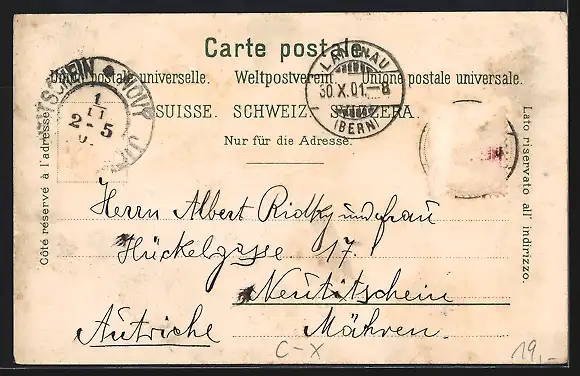 Carte postale.
Union postale universelle. Weltpostverein. Unione postale universale.
SUISSE. SCHWEIZ. SVIZZERA.
Nur für die Adresse.
Côté réservé à l'adresse.
Lato riservato all' indirizzo.
LANGNAU
30.X.01.-8
(BERN)
TITSCHEIN * NOVÝ JIČ
1
11
2-5
Herrn Albert Ridky und frau
Hückelgasse 17.
Neutitschein
Autriche Mähren.
C-X
19,-